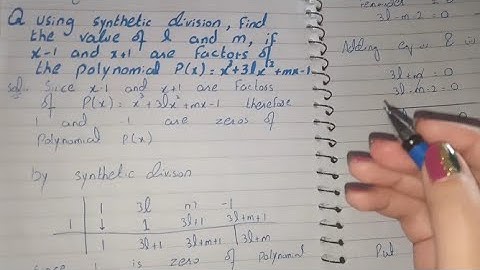 Q using synthetic division, find
the value of l and m, if
x-1 and x+1 are factors of
the polynomial P(x) = x³+3lx²+mx-1
Sol: Sice x-1 and x+1 are factors
of P(x) = x³+3lx²+mx-1 therefore
1 and 1 are zeros of
Polynomial P(x)
by synthetic divison
1 3l m -1
1 ↓ 1 3l+1 3l+m+1
1 3l+1 3l+m+1 3l+m
1 is zero of Polynomial
3l-m-2=0
Adding eq
3l+m=0
3l-m-2=0
Put